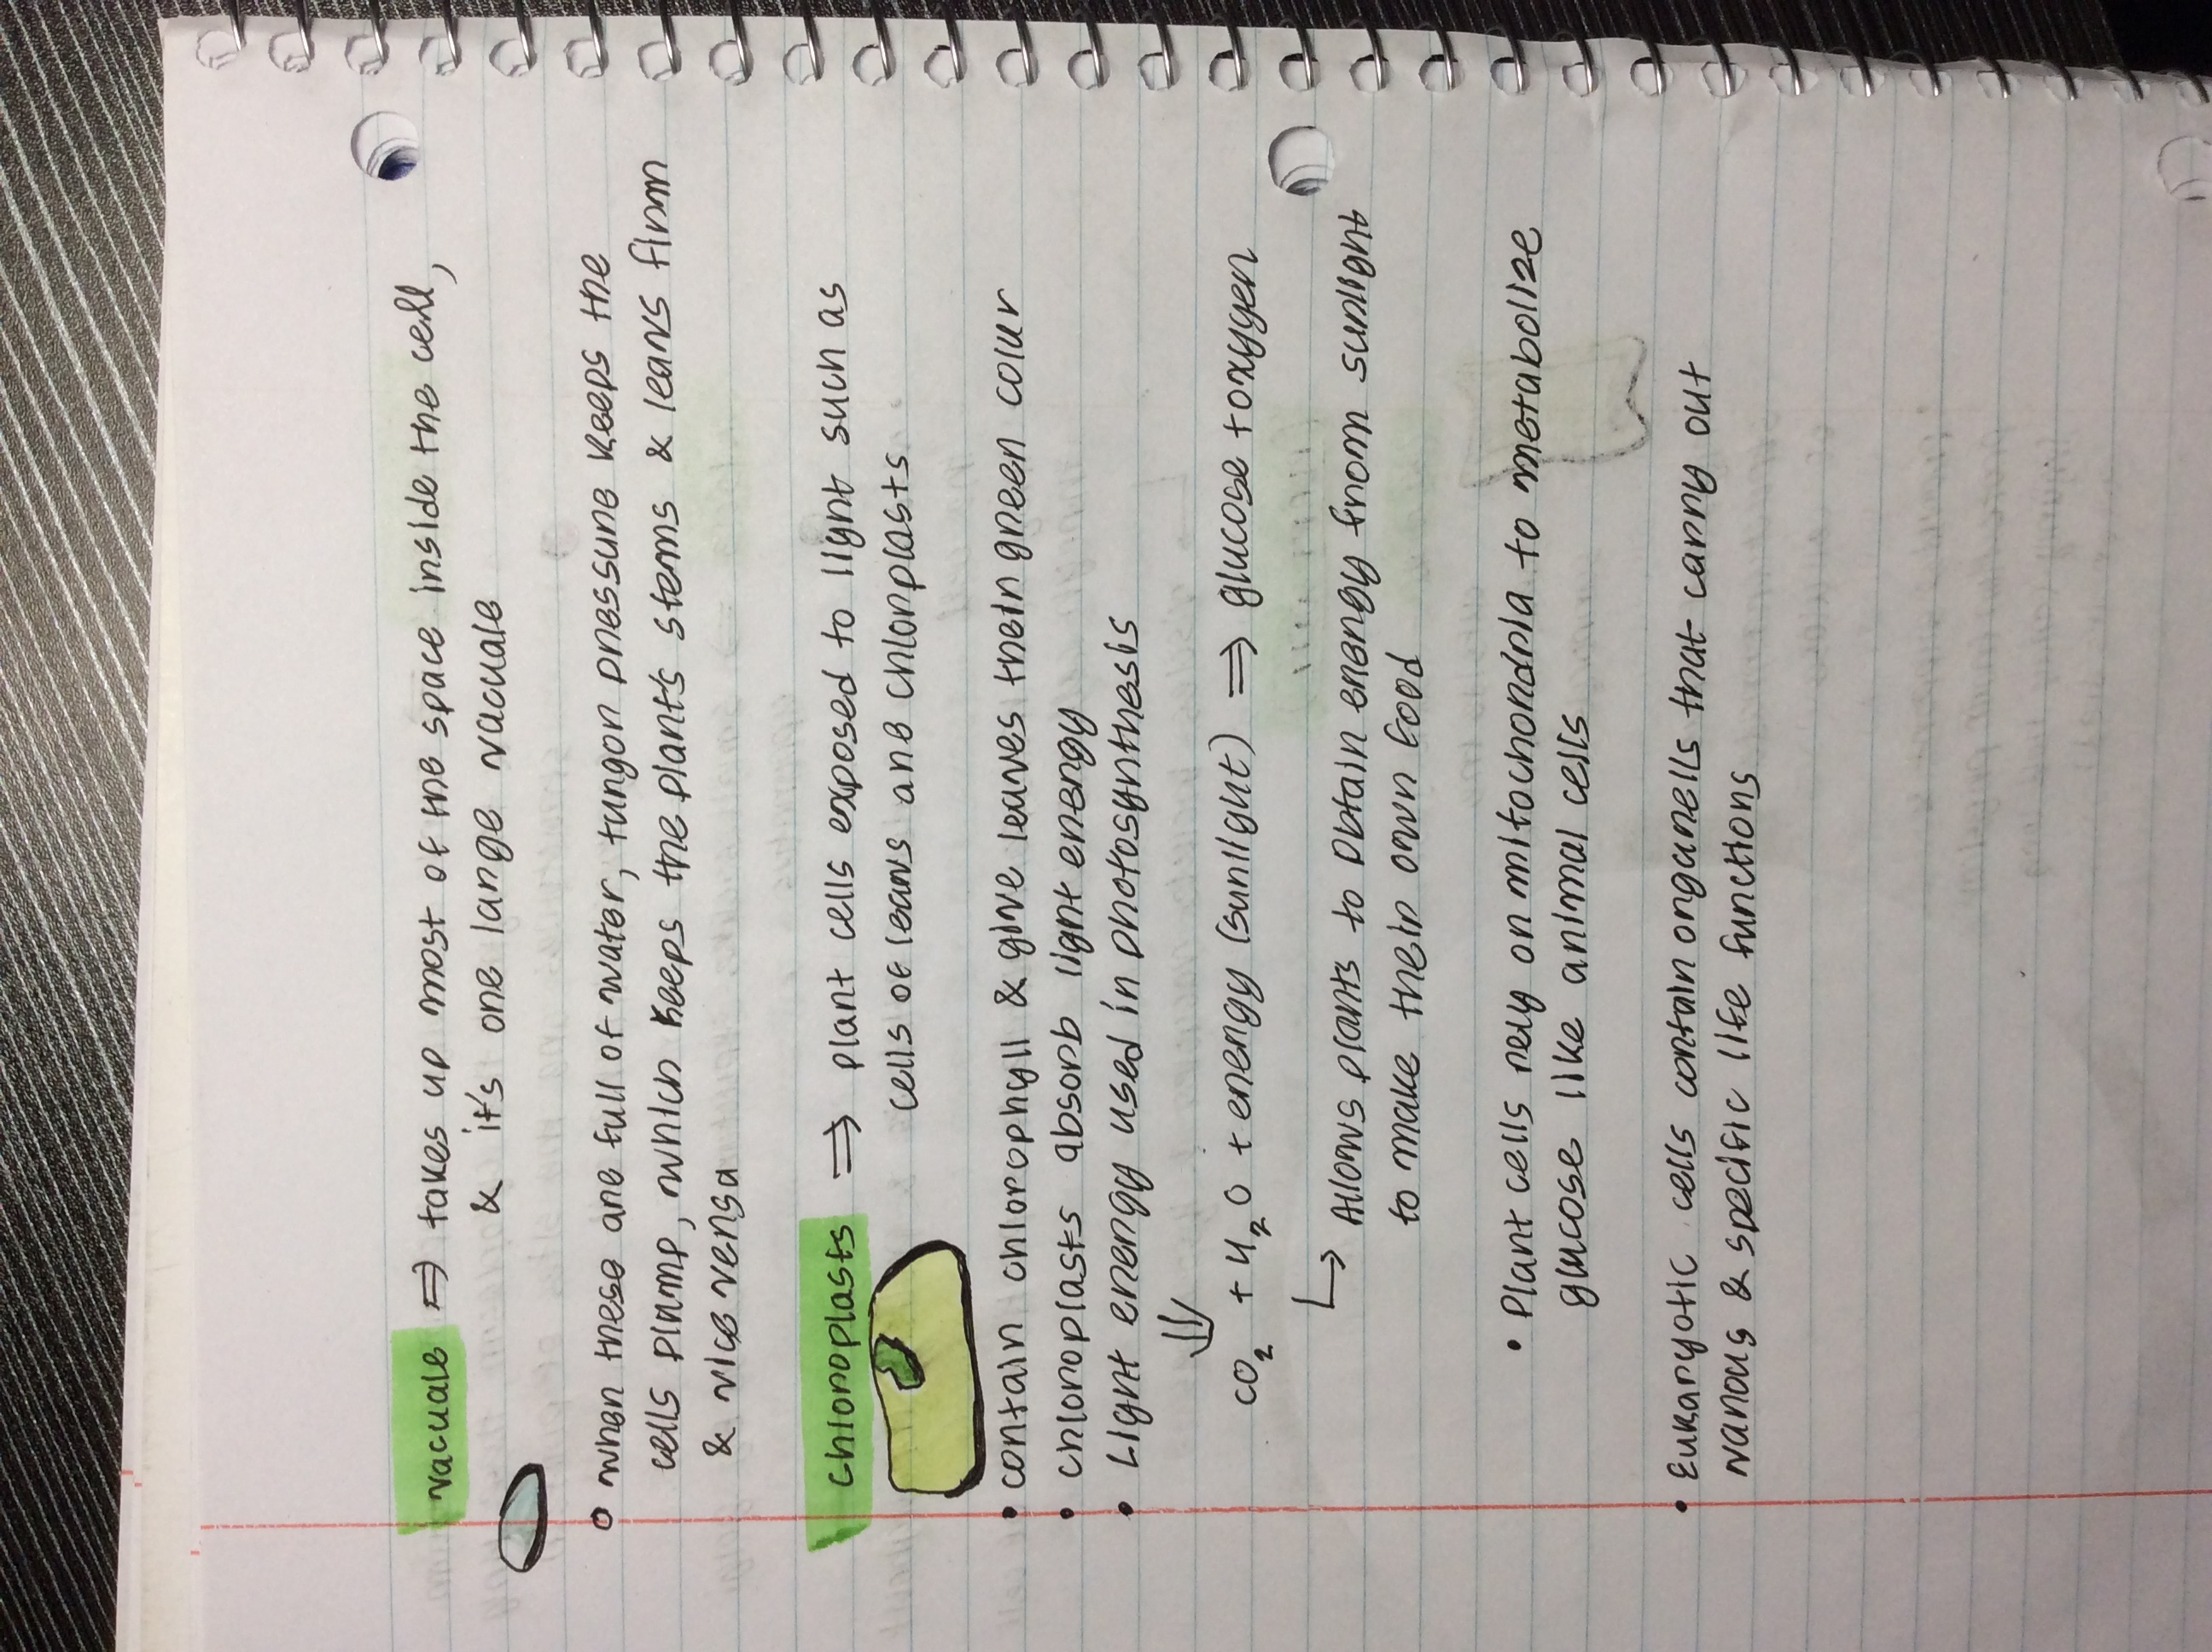 vacuale ⇒ takes up most of the space inside the cell,
& it's one large vacuale
when these are full of water, turgor pressure keeps the
cells plump, which keeps the plant's stems & leavs firm
& vice versa
chloroplasts ⇒ plant cells exposed to light such as
cells of leavs are chlorplasts
• contain chlorophyll & give leaves their green colur
• chloroplasts absorb light energy
• Light energy used in photosynthesis
⇓
CO₂ + H₂O + energy (sunlight) ⇒ glucose + oxygen
↳ Allows plants to obtain energy from sunlight
to make their own food
• Plant cells rely on mitochondria to metabolize
glucose like animal cells
• Eukaryotic cells contain organells that carry out
varous & specific life functions